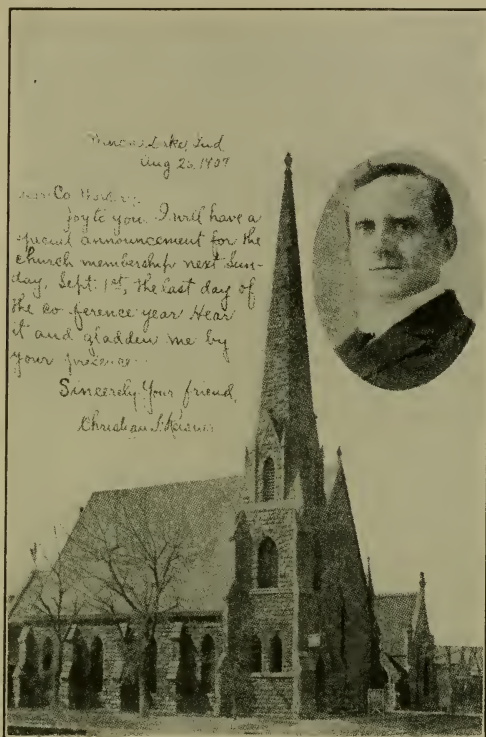 Winona Lake, Ind
Aug 26, 1907
Dear Co Worker:
Joy to you. I will have a
special announcement for the
church membership next Sun-
day, Sept. 1st, the last day of
the conference year Hear
it and gladden me by
your presence.
Sincerely Your friend,
Christian F. Reisner